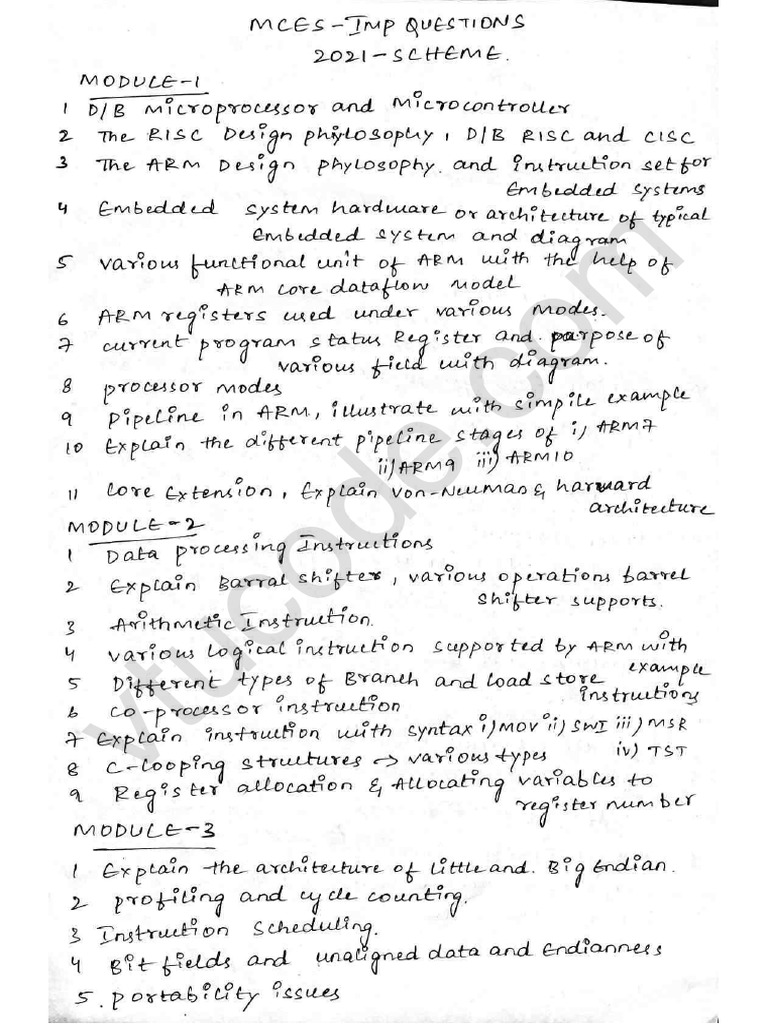 MCES-IMP QUESTIONS
2021-SCHEME.
MODULE-1
1 D/B Microprocessor and Microcontroller
2 The RISC Design phylosophy, D/B RISC and CISC
3 The ARM Design phylosophy. and instruction set for
Embedded systems
4 Embedded system hardware or architecture of typical
Embedded system and diagram
5 various functional unit of ARM with the help of
ARM core dataflow model
6 ARM registers used under various modes.
7 current program status Register and purpose of
various field with diagram.
8 processor modes
9 Pipeline in ARM, illustrate with simpile example
10 Explain the different pipeline stages of i) ARM7
ii) ARM9 iii) ARM10
11 Core Extension, Explain von-Neuman & harward
architecture
MODULE-2
1 Data processing Instructions
2 Explain Barral shifter, various operations barrel
shifter supports.
3 Arithmetic Instruction.
4 various Logical instruction supported by ARM with
example
5 Different types of Branch and load store
instructions
6 co-processor instruction
7 Explain instruction with syntax i) MOV ii) SWI iii) MSR
iv) TST
8 C-Looping structures → various types
9 Register allocation & Allocating variables to
register number
MODULE-3
1 Explain the architecture of little and. Big Endian.
2 profiling and cycle counting.
3 Instruction scheduling.
4 Bit fields and unaligned data and Endianness
5. portability issues
vtucode.com